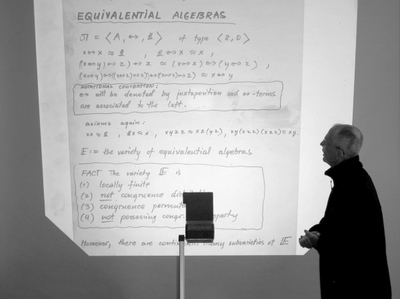 EQUIVALENTIAL ALGEBRAS
𝔄 = ⟨A, ↔, 1⟩ of type ⟨2,0⟩
x↔x ≈ 1 , 1↔x ≈ x ,
(x↔y)↔z)↔z ≈ (x↔z)↔(y↔z) ,
NOTATIONAL CONVENTION:
↔ will be denoted by juxtaposition and ↔-terms
are associated to the left.
axioms again:
xx ≈ 1 , 1x ≈ x , xyzz ≈ xz(yz) , xy(xzz)(xzz) ≈ xy.
E := the variety of equivalential algebras
FACT The variety E is
(1) locally finite
(2) not congruence
(3) congruence
(4) not possessing
Moreover, there are many subvarieties of E